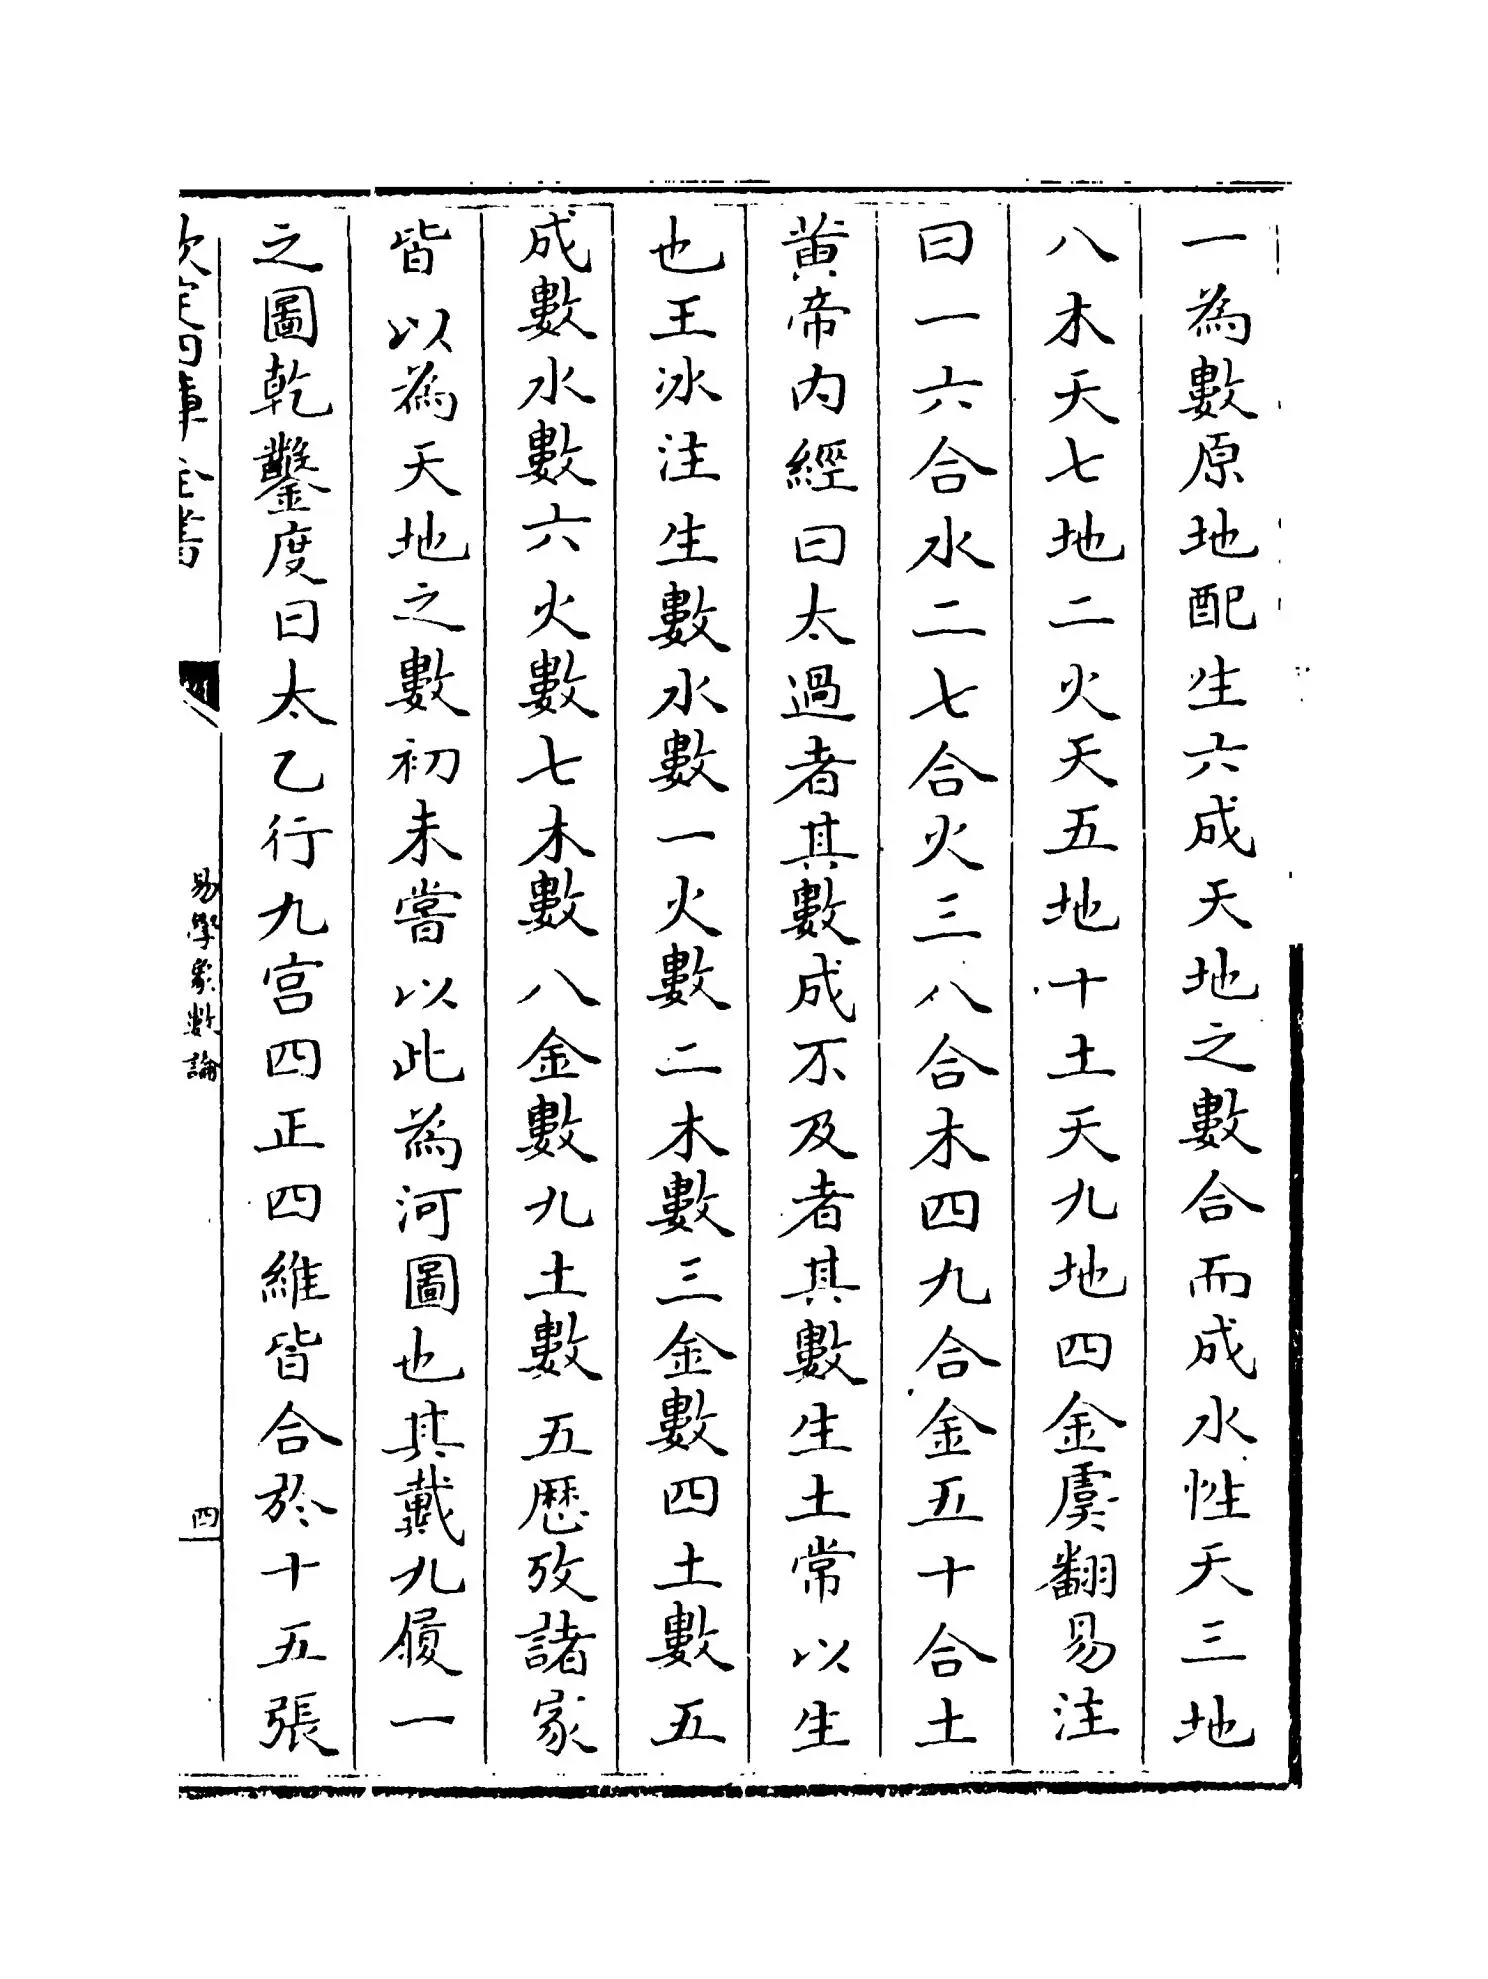 一為數原地配生六成天地之數合而成水性天三地
八木天七地二火天五地十土天九地四金虞翻易注
曰一六合水二七合火三八合木四九合金五十合土
黄帝内經曰太過者其數成不及者其數生土常以生
也王冰注生數水數一火數二木數三金數四土數五
成數水數六火數七木數八金數九土數五歴攷諸家
皆以為天地之數初未嘗以此為河圖也其戴九履一
之圖乾鑿度曰太乙行九宫四正四維皆合於十五張
欽定四庫全書
易學象數論
四